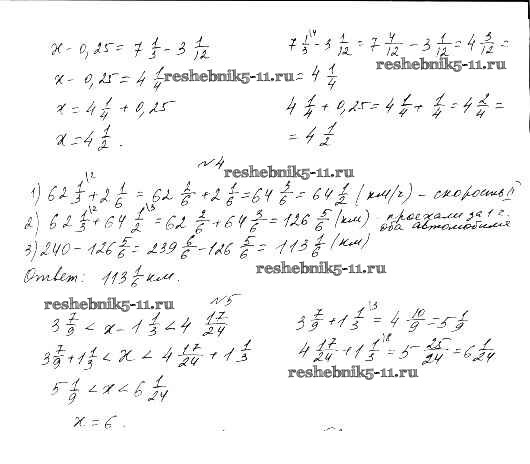 x - 0,25 = 7 1/3 - 3 1/12
x - 0,25 = 4 1/4
x = 4 1/4 + 0,25
x = 4 1/2.
7 1/3 \4 - 3 1/12 = 7 4/12 - 3 1/12 = 4 3/12 =
reshebnik5-11.ru
reshebnik5-11.ru = 4 1/4
4 1/4 + 0,25 = 4 1/4 + 1/4 = 4 2/4 =
= 4 1/2
№4
reshebnik5-11.ru
1) 62 1/3 \2 + 2 1/6 = 62 2/6 + 2 1/6 = 64 3/6 = 64 1/2 (км/г) - скорость II
2) 62 1/3 \2 + 64 1/2 \3 = 62 2/6 + 64 3/6 = 126 5/6 (км) - проехали за 1 г.
оба автомобиля
3) 240 - 126 5/6 = 239 6/6 - 126 5/6 = 113 1/6 (км)
Ответ: 113 1/6 км.
reshebnik5-11.ru
reshebnik5-11.ru
№5
3 7/9 < x - 1 1/3 < 4 17/24
3 7/9 + 1 1/3 < x < 4 17/24 + 1 1/3
5 1/9 < x < 6 1/24
x = 6.
3 7/9 + 1 1/3 \3 = 4 10/9 = 5 1/9
4 17/24 + 1 1/3 \8 = 5 25/24 = 6 1/24
reshebnik5-11.ru